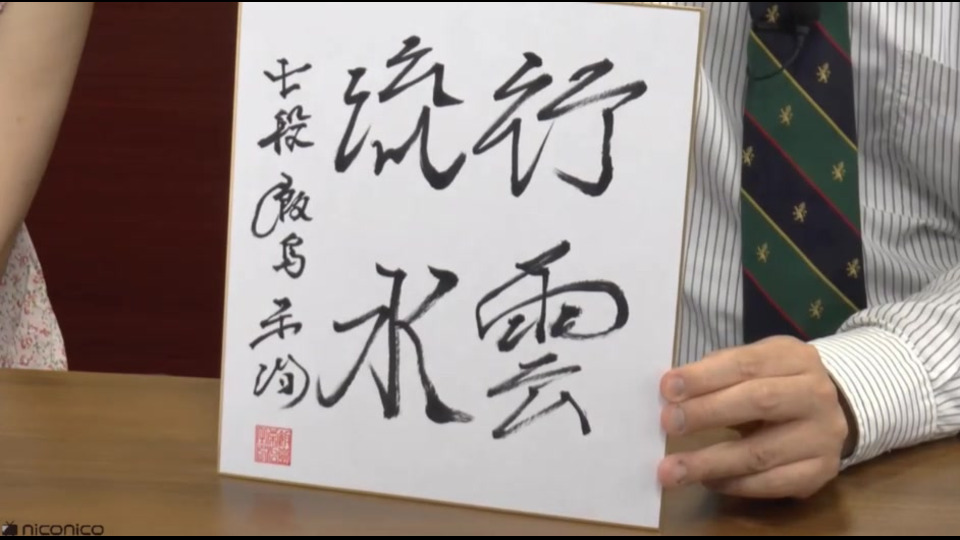 行雲
流水
七段 飯島 栄治
niconico